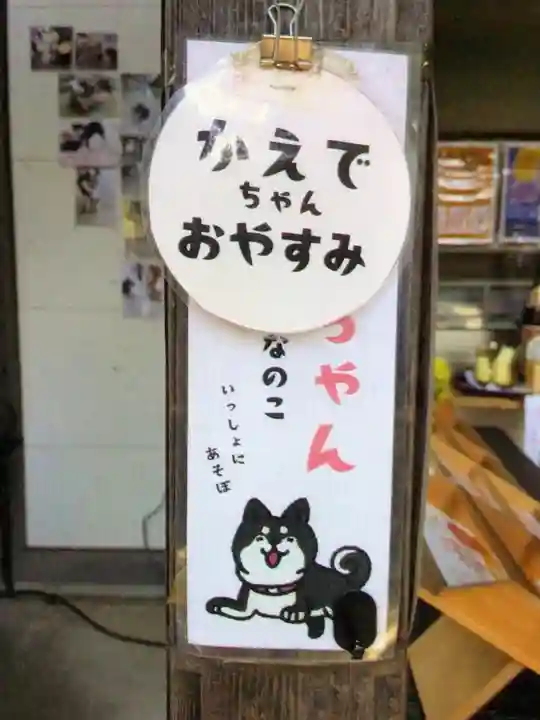 かえで
ちゃん
おやすみ
ちゃん
なのこ
いっしょに
あそぼ